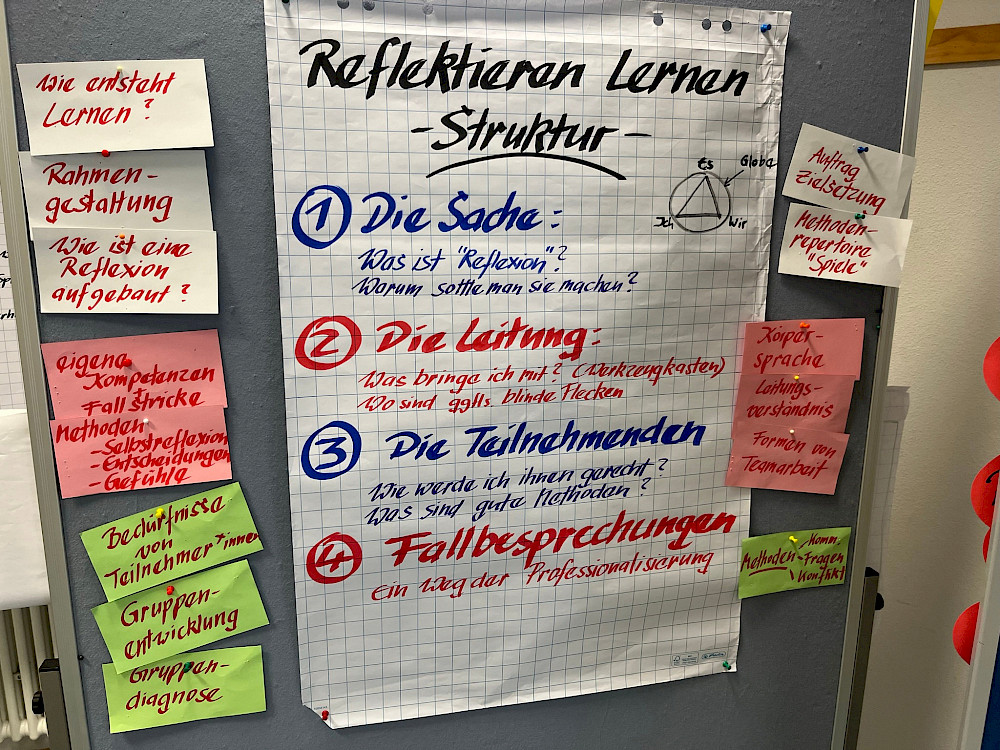 Wie entsteht
Lernen?
Rahmen-
gestaltung
Wie ist eine
Reflexion
aufgebaut?
eigene
Kompetenzen
+
Fallstricke
Methoden
- Selbstreflexion
- Entscheidungen
- Gefühle
Bedürfnisse
von
Teilnehmer*innen
Gruppen-
entwicklung
Gruppen-
diagnose
Reflektieren Lernen
- Struktur -
Es
Globe
Ich
Wir
1 Die Sache:
Was ist "Reflexion"?
Warum sollte man sie machen?
2 Die Leitung:
Was bringe ich mit? (Werkzeugkasten)
Wo sind ggfls. blinde Flecken
3 Die Teilnehmenden
Wie werde ich ihnen gerecht?
Was sind gute Methoden?
4 Fallbesprechungen
Ein Weg der Professionalisierung
Auftrag
Zielsetzung
Methoden-
repertoire
"Spiele"
Körper-
sprache
Leitungs-
verständnis
Formen von
Teamarbeit
Methoden
Komm.
- Fragen
Konflikt